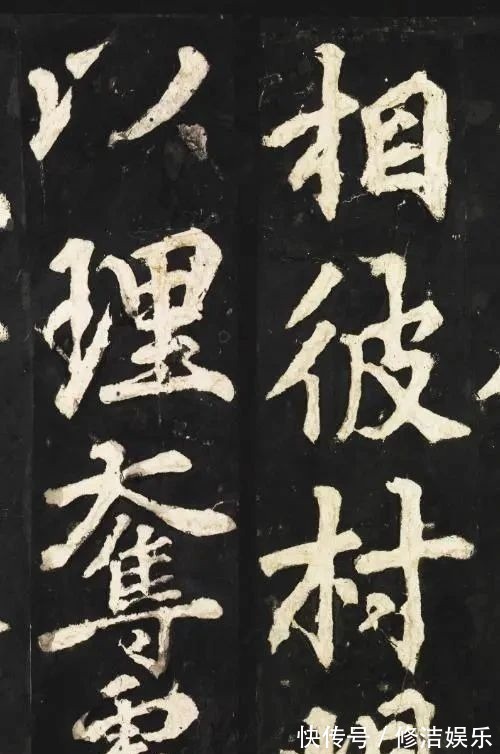 相彼村
以理奪
快传号/修洁娱乐